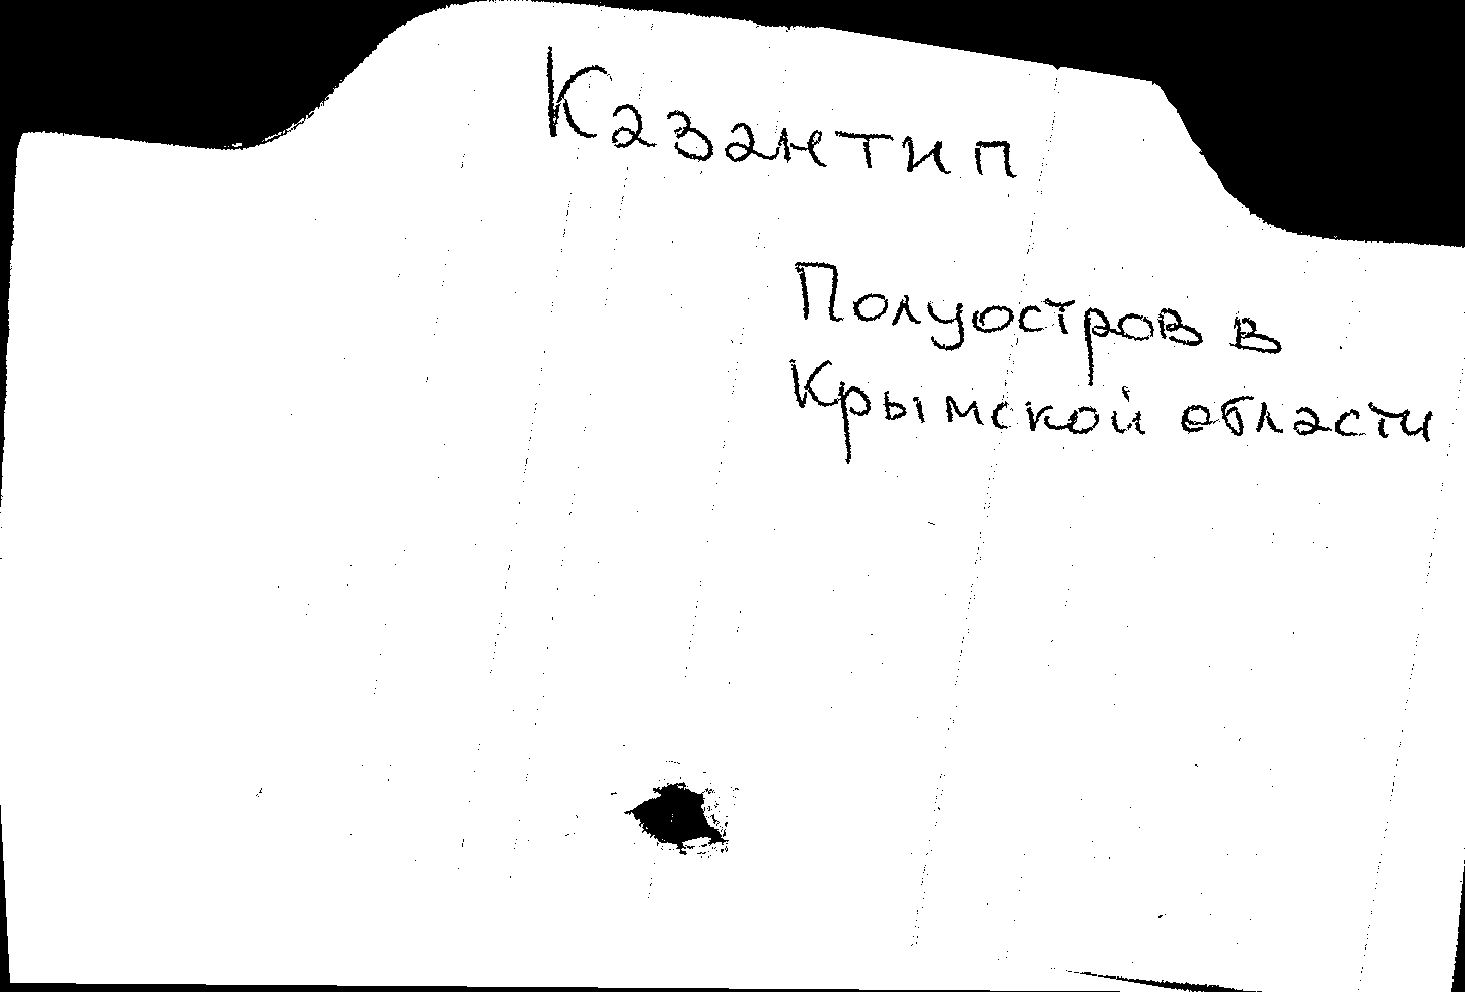 Казантип
Полуостров в
Крымской области